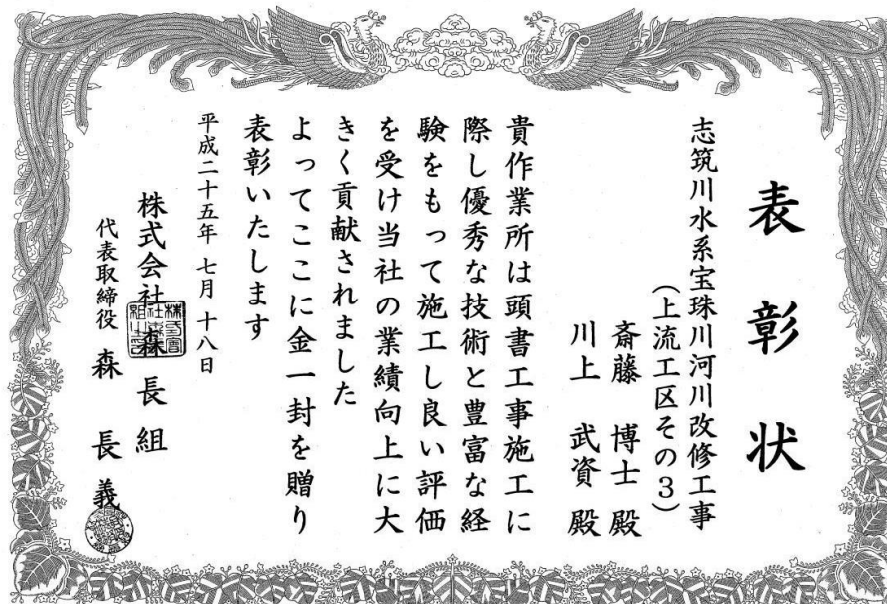 表彰状
志筑川水系宝珠川河川改修工事
(上流工区その3)
斎藤 博士 殿
川上 武資 殿
貴作業所は頭書工事施工に
際し優秀な技術と豊富な経
験をもって施工し良い評価
を受け当社の業績向上に大
きく貢献されました
よってここに金一封を贈り
表彰いたします
平成二十五年 七月 十八日
株式会社 森長組
代表取締役 森 長義